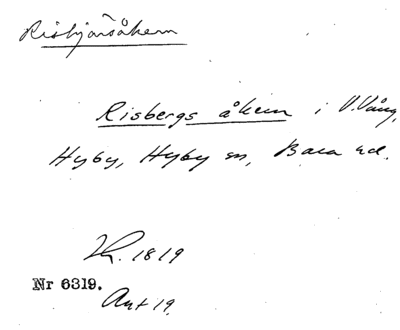 Risbjörsåkern
Risbergs åkern i V. Vång,
Hyby, Hyby sn, Bara hd.
1819
Nr 6319.
Ant 19.